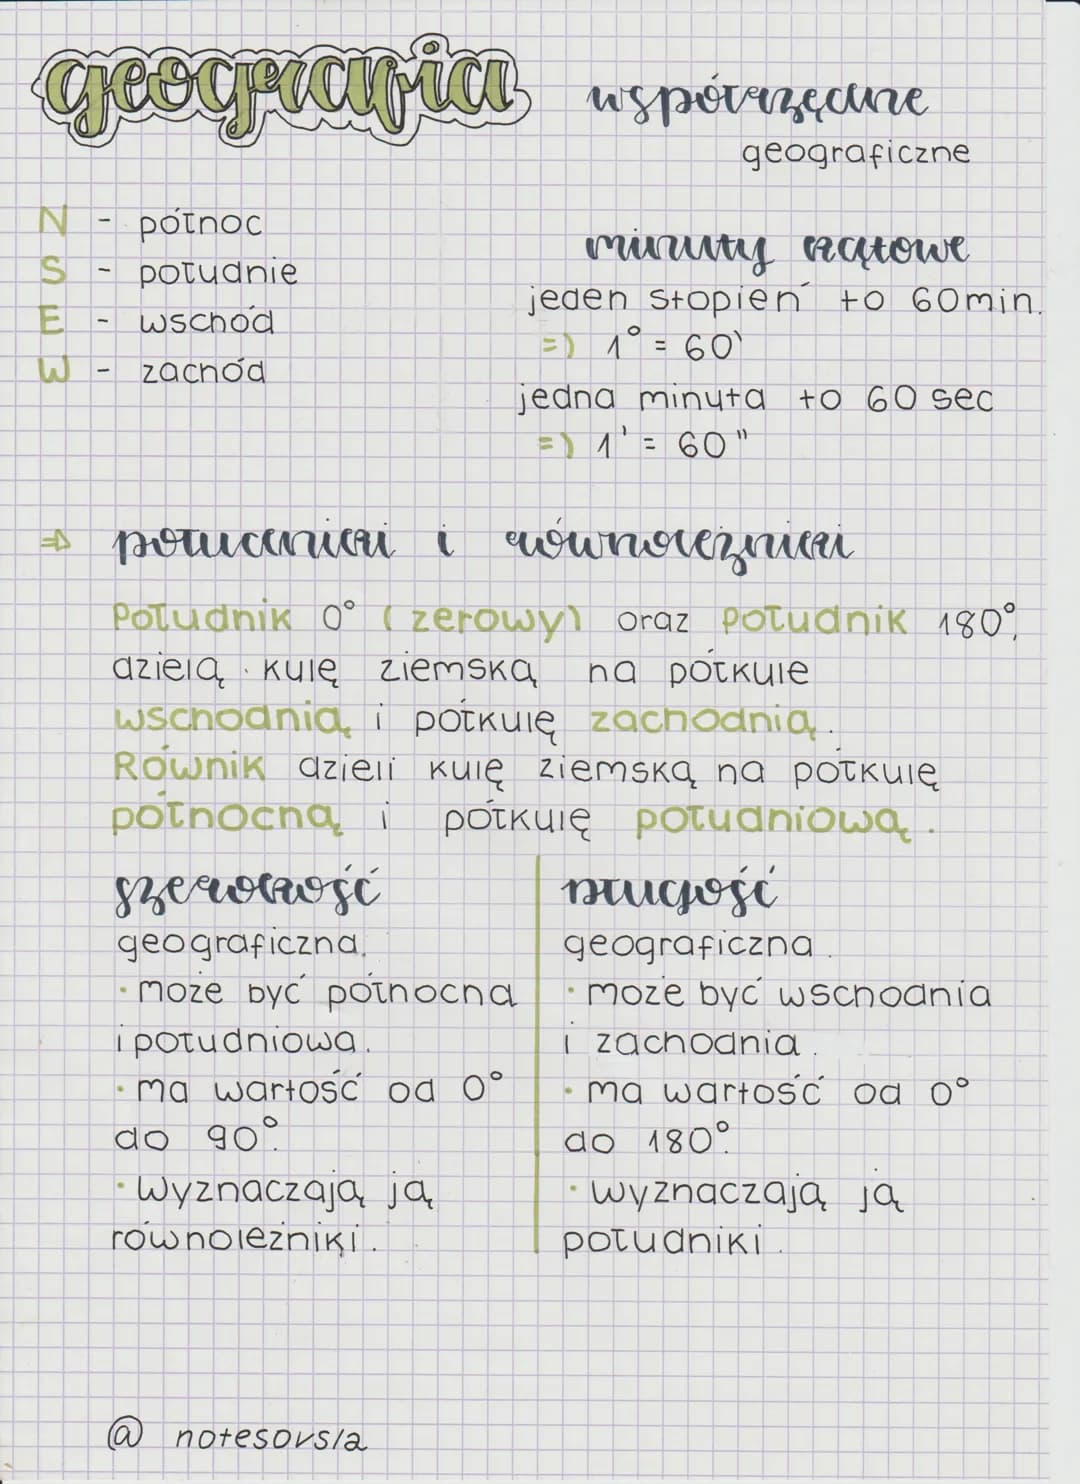 geografia
współrzędne
geograficzne
N - północ
S - południe
E - wschód
W - zachód
minuty kątowe
jeden stopień to 60min.
=) 1° = 60`
jedna minuta to 60 sec
=) 1' = 60"
⇒ południki i równoleżniki
Południk 0° (zerowy) oraz południk 180°,
dzielą kulę ziemską na półkule
wschodnią i półkulę zachodnią.
Równik dzieli kulę ziemską na półkulę
północną i półkulę południową.
szerokość
geograficzna.
· może być północna
i południowa.
· ma wartość od 0°
do 90°.
· wyznaczają ją
równoleżniki.
długość
geograficzna.
· może być wschodnia
i zachodnia.
· ma wartość od 0°
do 180°.
· wyznaczają ją
południki.
@notesovsla